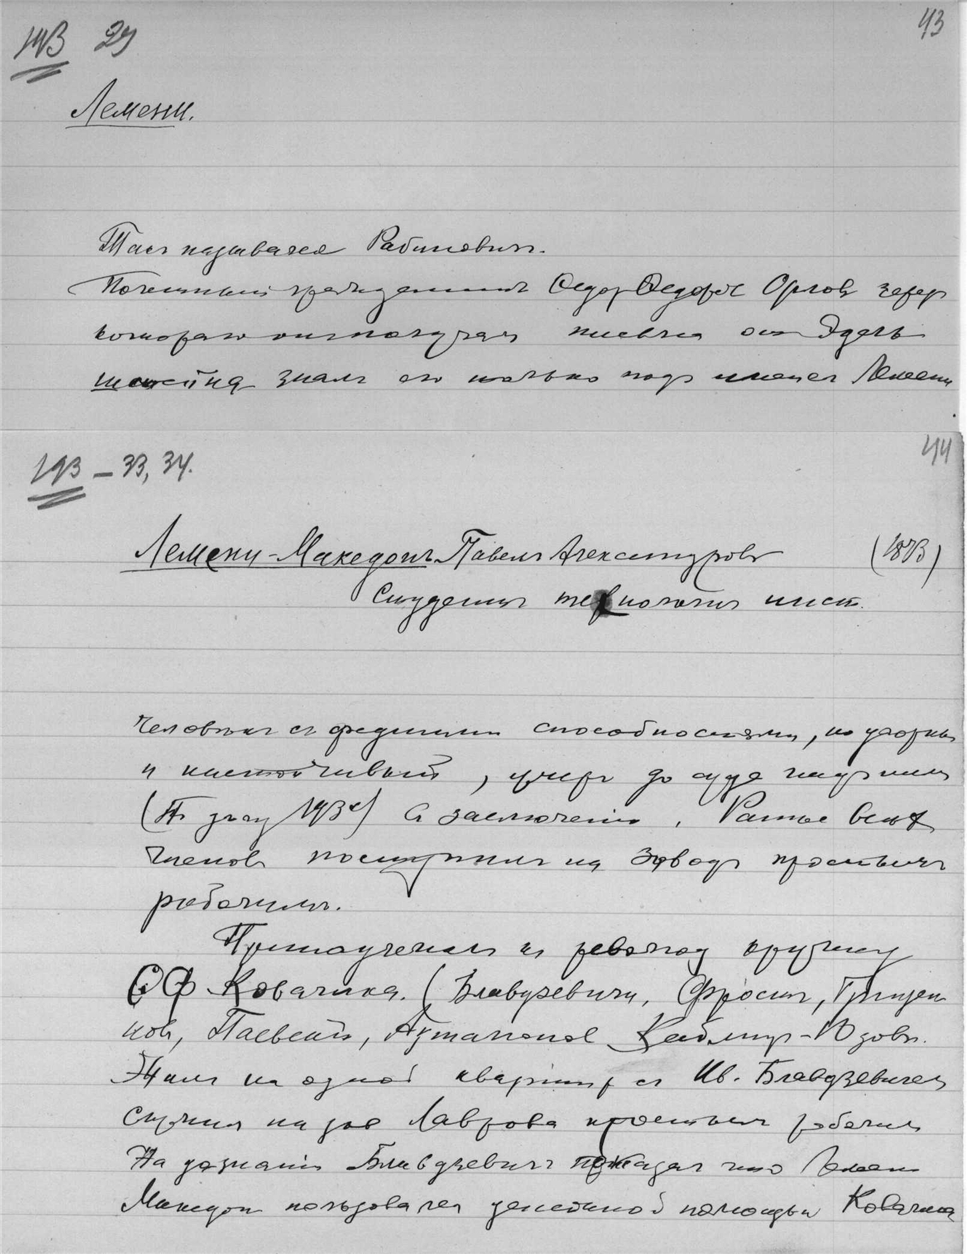 193 29
43
Лемени.
Такъ назывался Рабиновичъ.
Почетный гражданинъ Федор Федоров Орлов через
котораго он получал письма от Эдель
штейна знал его только под именем Лемени
193 – 33, 34.
44
Лемени-Македонъ Павелъ Александров (1873)
Студентъ технологич инст.
Человѣкъ съ средними способностями, но упорный
и настойчивый, умеръ до суда
(По делу 193х) в заключении. Ранее всѣх
членов поступилъ на завод простымъ
рабочимъ.
Принадлежалъ къ революц кружку
СФ Ковалика. (Блавдзевичи, Фрост, Грицен
ков, Паевский, Артамонов
Жилъ на одной квартире съ Ив. Блавдзевичем
служил на зав Лаврова простым рабочим
На дознании Блавдзевичъ показал что Лемени
Македон пользовался денежной помощью Ковалика